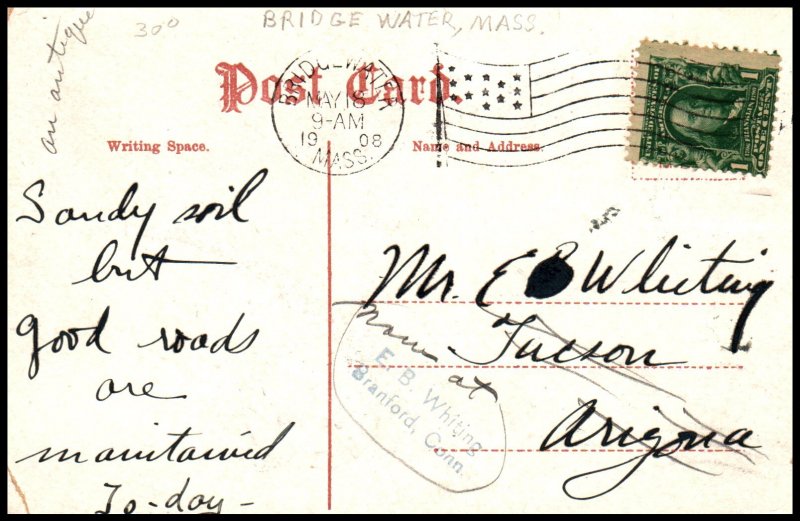 an antique
30⁰
BRIDGE WATER, MASS.
Post Card.
BRIDGEWATER
MAY 18
9-AM
1908
MASS.
1 1
ONE CENT
Writing Space.
Name and Address.
Sandy soil
but
good roads
are
maintained
To-day-
Mr. E B Whiting
Tucson
Arizona
now at
E. B. Whiting
Branford, Conn.